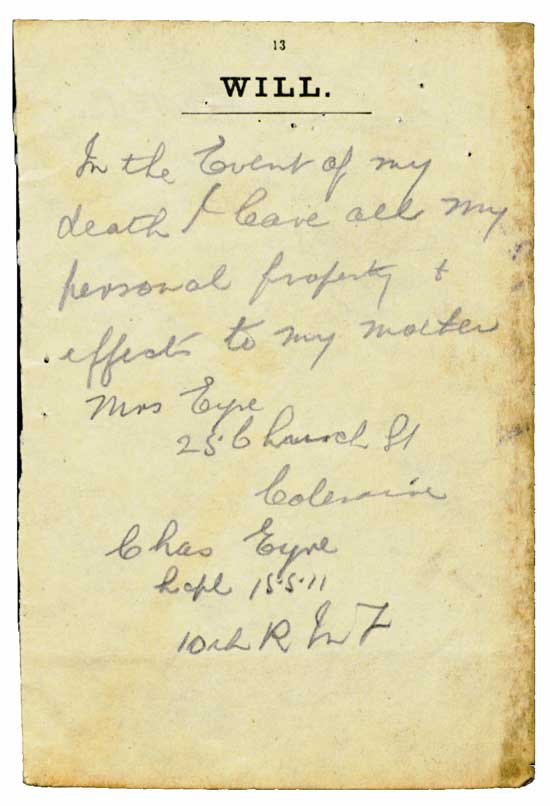 13
WILL.
In the Event of my
death I leave all my
personal property +
effects to my mother
Mrs Eyre
25 Church St
Coleraine
Chas Eyre
15.5.11
10th R In F